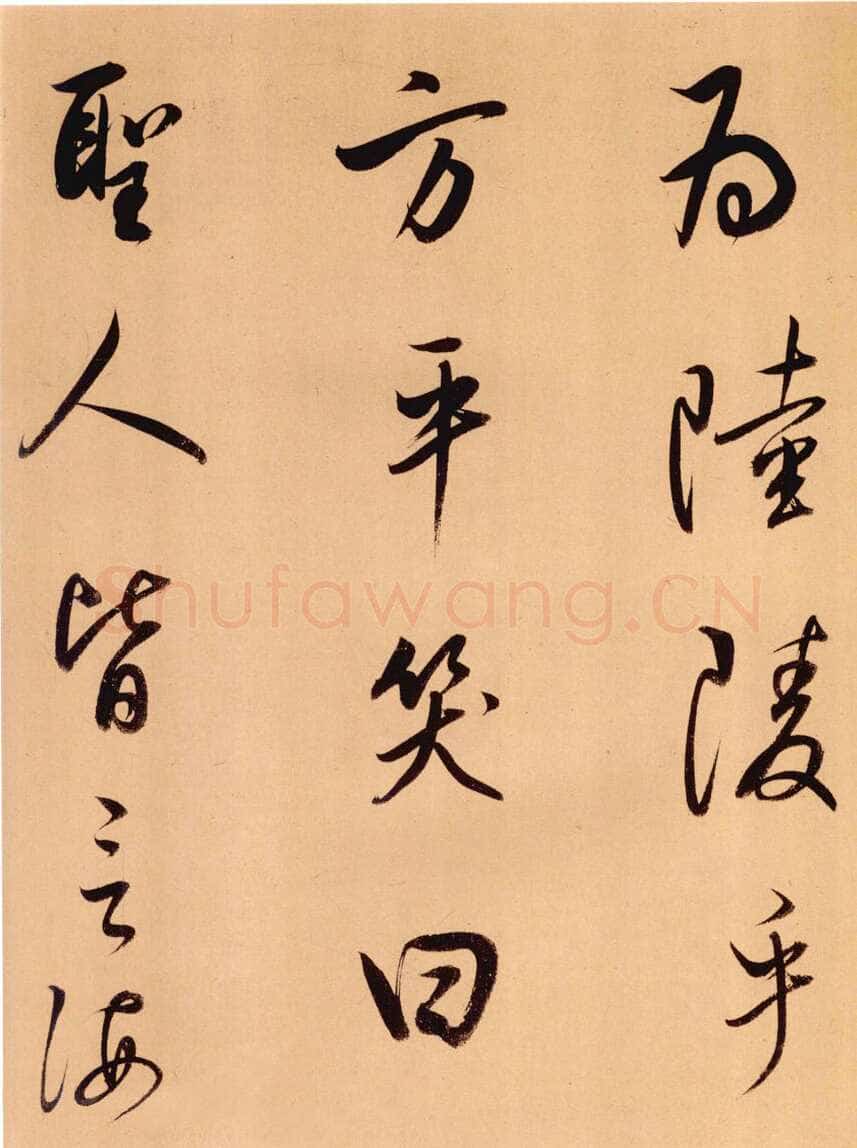 為陸陵乎
方平笑曰
聖人皆言海
Shufawang.CN